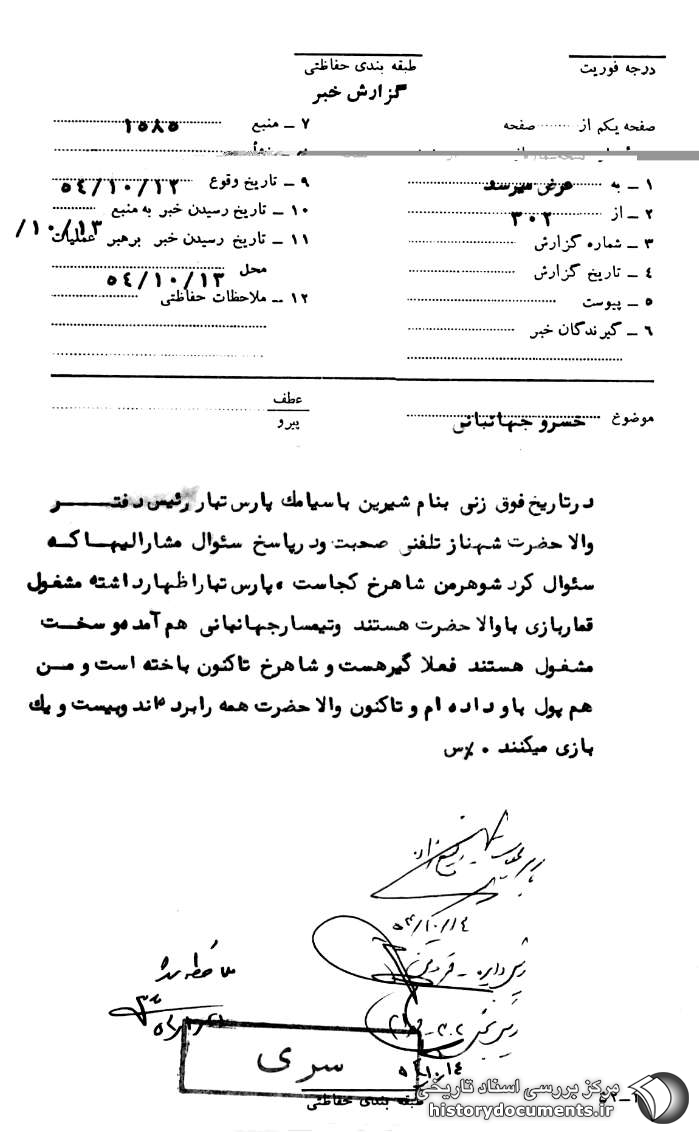 درجه فوریت
طبقه بندی حفاظتی
گزارش خبر
صفحه یکم از ........ صفحه
۱ ــ به عرض میرسد
۲ ــ از ۳۰۲
۳ ــ شماره گزارش
۴ ــ تاریخ گزارش
۵ ــ پیوست
۶ ــ گیرندگان خبر
۷ ــ منبع ۱۵۸۵
۹ ــ تاریخ وقوع ۵۴/۱۰/۱۲
۱۰ ــ تاریخ رسیدن خبر به منبع
/۱۰/۱۳
۱۱ ــ تاریخ رسیدن خبر برهبر عملیات
محل ۵٤/۱۰/۱۳
۱۲ ــ ملاحظات حفاظتی
موضوع خسرو جهانبانی
عطف
پیرو
درتاریخ فوق زنی بنام شیرین باسیامك پارس تبار رئیس دفتـــر
والا حضرت شهناز تلفنی صحبت ودرپاسخ سئوال مشارالیهـا کـه
سئوال کرد شوهرمن شاهرخ کجاست ، پارس تبار اظهارداشته مشغول
قماربازی باوالا حضرت هستند وتیمسارجهانبانی هم آمده و سخـت
مشغول هستند فعلا گیرهست و شاهرخ تاکنون باخته است و مـن
هم پول باو داده ام و تاکنون والا حضرت همه رابرده اند وبیست و یك
بازی میکنند . /س
۵۴/۱۰/۱۴
ملاحظه شد
سری
طبقه بندی حفاظتی
مرکز بررسی اسناد تاریخی
historydocuments.ir